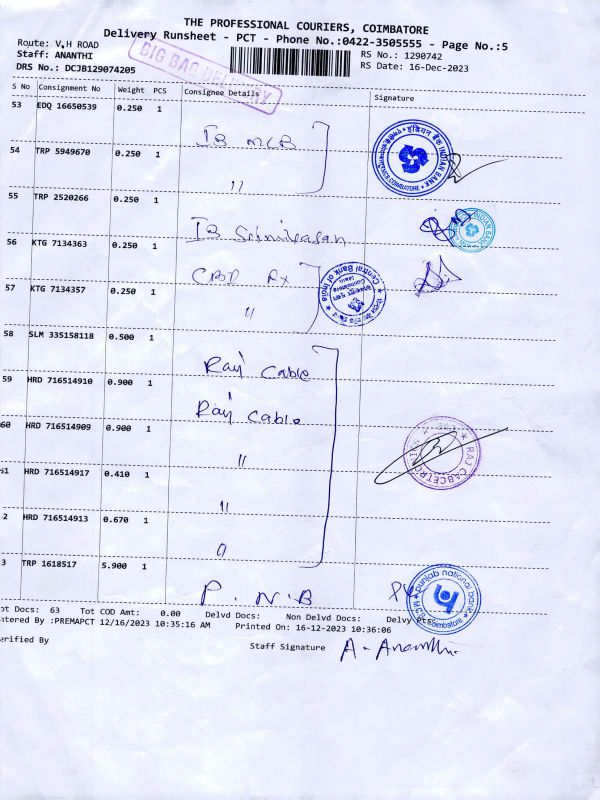 THE PROFESSIONAL COURIERS, COIMBATORE
Delivery Runsheet - PCT - Phone No.:0422-3505555 - Page No.:5
Route: V,H ROAD
RS No.: 1290742
Staff: ANANTHI
RS Date: 16-Dec-2023
DRS No.: DCJB129074205
BIG BAG DELIVERY
S No Consignment No Weight PCS Consignee Details Signature
53 EDQ 16650539 0.250 1
IB MCB
54 TRP 5949670 0.250 1
"
इंडियन बैंक INDIAN BANK
COIMBATORE
55 TRP 2520266 0.250 1
IB Srinivasan
INDIAN BANK
56 KTG 7134363 0.250 1
CBD Rx
Central Bank of India
Coimbatore
57 KTG 7134357 0.250 1
"
58 SLM 335158118 0.500 1
Raj Cable
59 HRD 716514910 0.900 1
Raj Cable
60 HRD 716514909 0.900 1
"
RAJ
51 HRD 716514917 0.410 1
"
2 HRD 716514913 0.670 1
"
3 TRP 1618517 5.900 1
P.N.B
punjab national bank
Coimbatore
ot Docs: 63 Tot COD Amt: 0.00 Delvd Docs: Non Delvd Docs: Delvy
ntered By :PREMAPCT 12/16/2023 10:35:16 AM Printed On: 16-12-2023 10:36:06
erified By
Staff Signature A. Ananthi